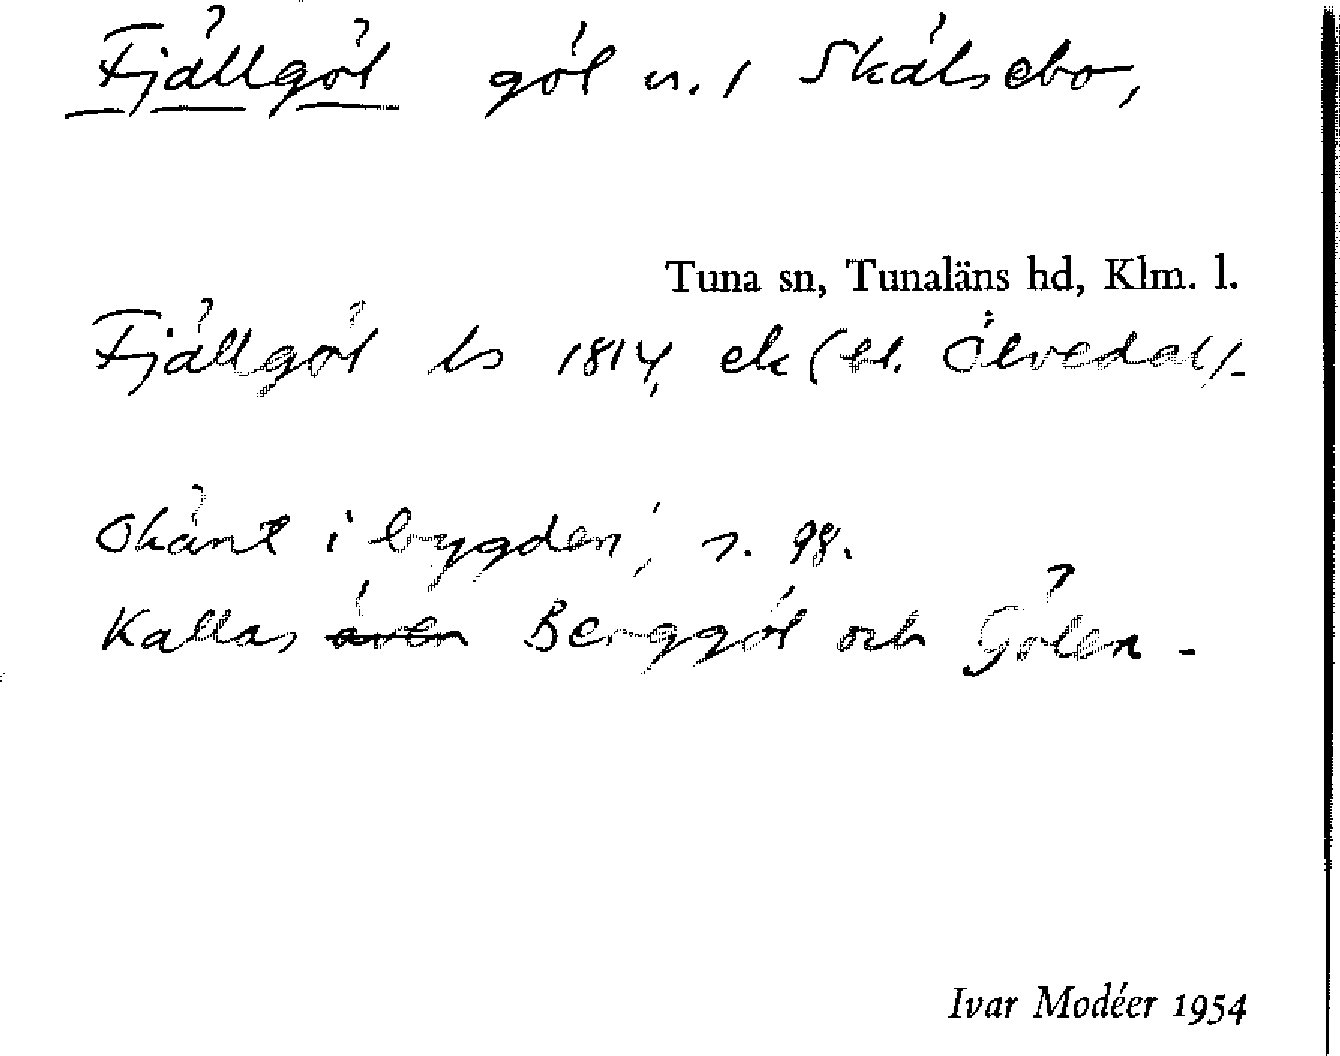 Fjällgöl göl n. / Skälsebo,
Tuna sn, Tunaläns hd, Klm. l.
Fjällgöl ls 1814, ek (bl. Ölvedal).
Okänt i bygden, s. 98.
Kallas även Berggöl och Gölen.
Ivar Modéer 1954